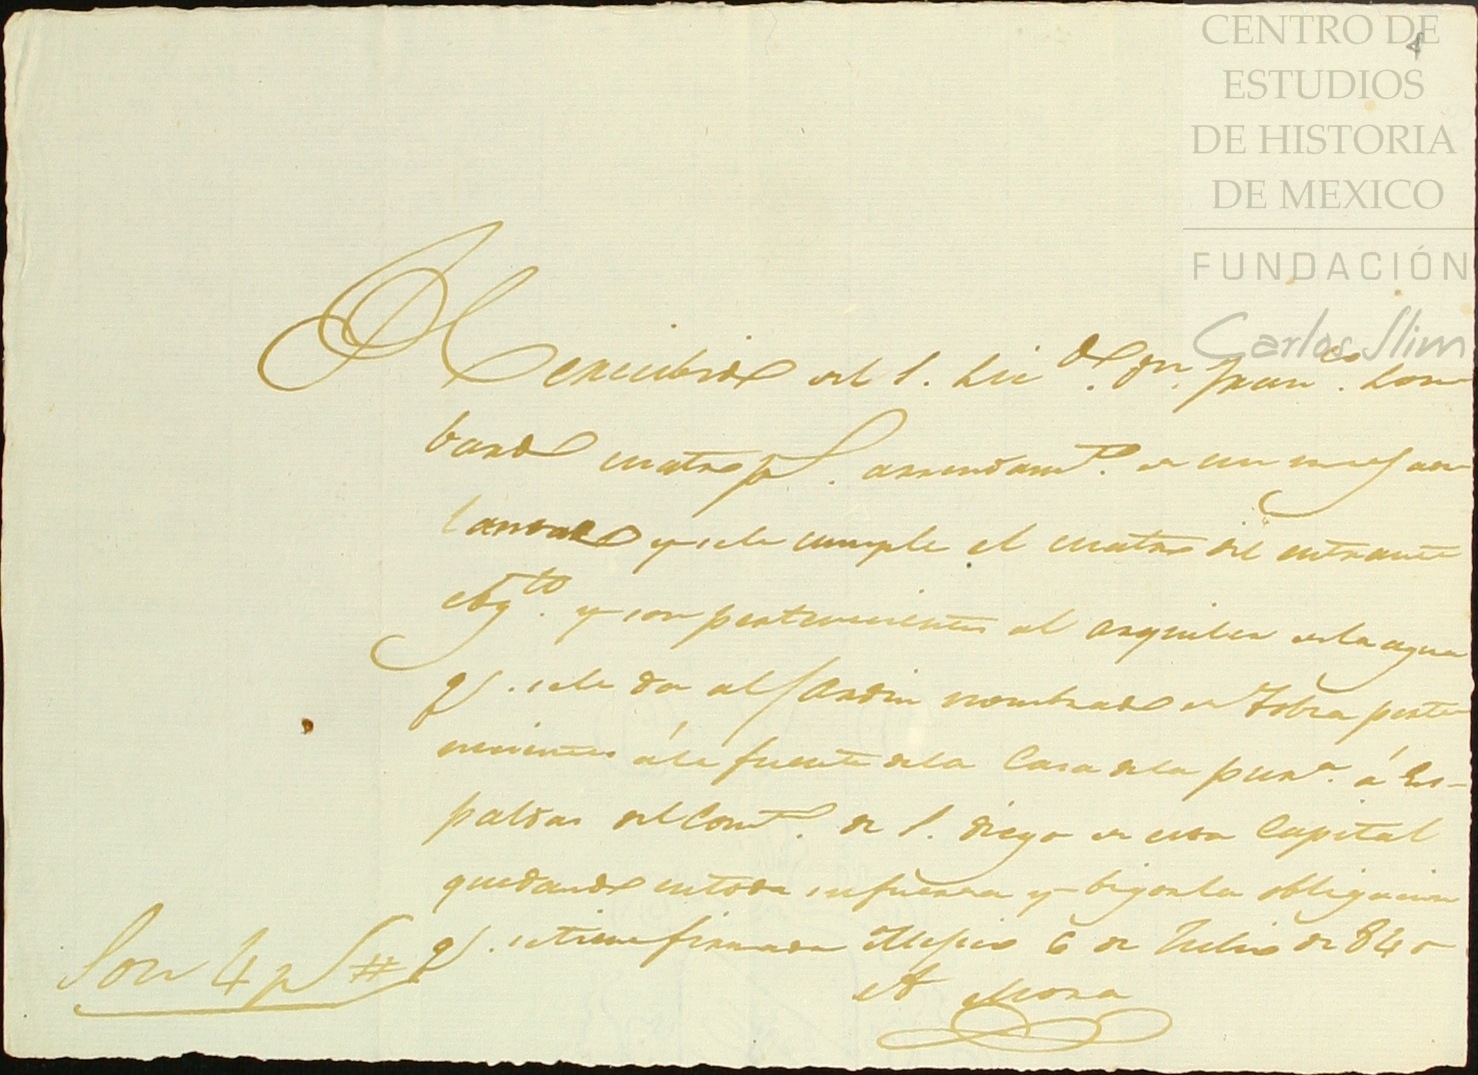 CENTRO DE
ESTUDIOS
DE HISTORIA
DE MEXICO
FUNDACIÓN
Carlos Slim
4
He recibido del S. Lic.do Dn. Fran.co Lom
bardo cuatro ps. arrendam.to de un mes ade
lantado y se le cumple el cuatro del entrante
Ag.to y son pertenecientes al arquiler de la agua
q.e se le da al Jardin nombrado de Tobra perte
necientes á la fuente de la Casa de la á Es-
paldas del Comb.to de S. diego de esta Capital
quedando en toda su fuerza y bigor la obligacion
q.e se tiene firmada Mejico 6 de Julio de 840
A Mora
Son 4 ps #